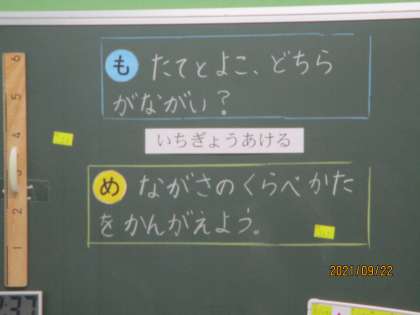 も たてとよこ、どちら
がながい?
いちぎょうあける
め ながさのくらべかた
をかんがえよう。
6
5
4
3
2
1
2021/09/22